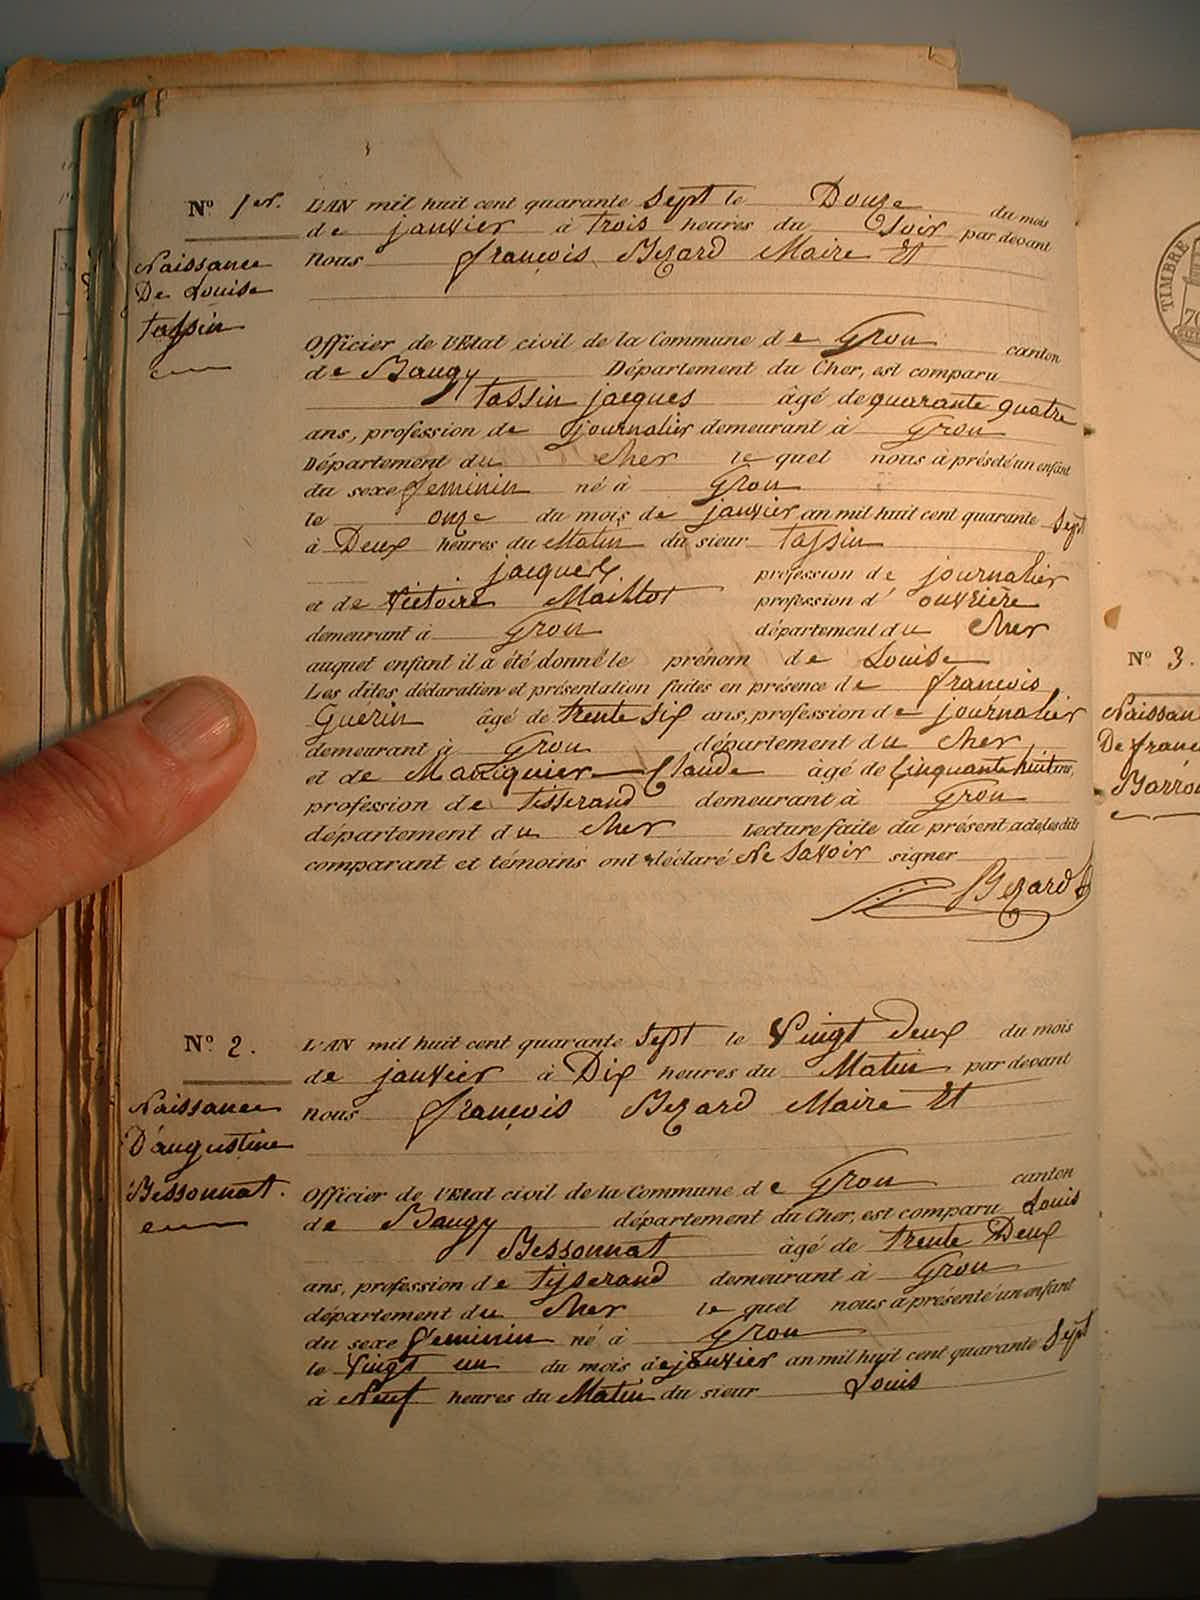 N.º 1er.
Naissance
De Louise
tassin
L'AN mil huit cent quarante sept le Douze du mois
de janvier à trois heures du Soir par devant
nous françois Bezard Maire Et
Officier de l'Etat civil de la Commune de Gron canton
de Baugy Département du Cher, est comparu
tassin jacques âgé de quarante quatre
ans, profession de journalier demeurant à Gron
Département du Cher le quel nous à préséte un enfant
du sexe feminin né à Gron
le onze du mois de janvier an mil huit cent quarante sept
à Deux heures du Matin du sieur tassin
jacques profession de journalier
et de Victoire Maillot profession d' ouvrière
demeurant à Gron département du Cher
auquel enfant il a été donné le prénom de Louise
Les dites déclaration et présentation faites en présence de françois
Guerin âgé de trente six ans, profession de journalier
demeurant à Gron département du Cher
et de Claude âgé de Cinquante huit ans,
profession de tisserand demeurant à Gron
département du Cher Lecture faite du présent acte, les dits
comparant et témoins ont déclaré Ne Savoir signer
Bezard
N.º 2.
Naissance
D'augustine
Bessonnat.
L'AN mil huit cent quarante sept le Vingt Deux du mois
de janvier à Dix heures du Matin par devant
nous françois Bezard Maire Et
Officier de l'Etat civil de la Commune de Gron canton
de Baugy département du Cher, est comparu Louis
Bessonnat âgé de trente Deux
ans, profession de tisserand demeurant à Gron
département du Cher le quel nous a présenté un enfant
du sexe feminin né à Gron
le Vingt un du mois de janvier an mil huit cent quarante sept
à Neuf heures du Matin du sieur Louis
TIMBRE
N.º 3.
Naissan
De franc